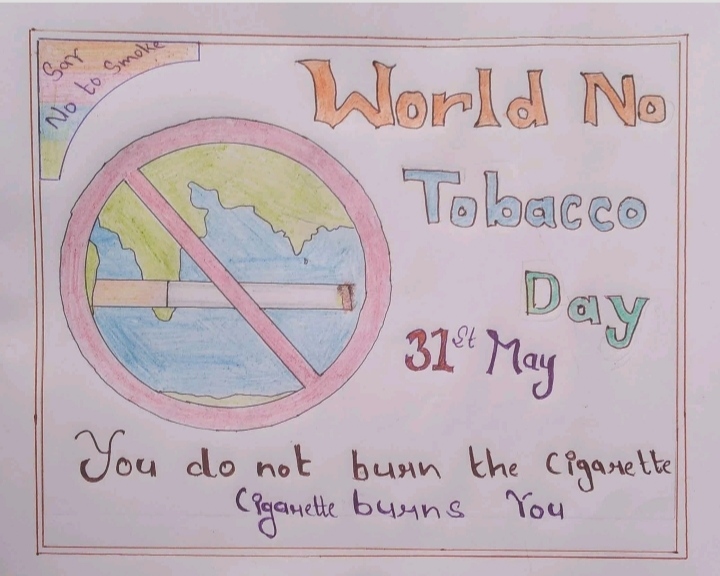 Say
No to Smoke
World No
Tobacco
Day
31st May
You do not burn the Cigarette
Cigarette burns You